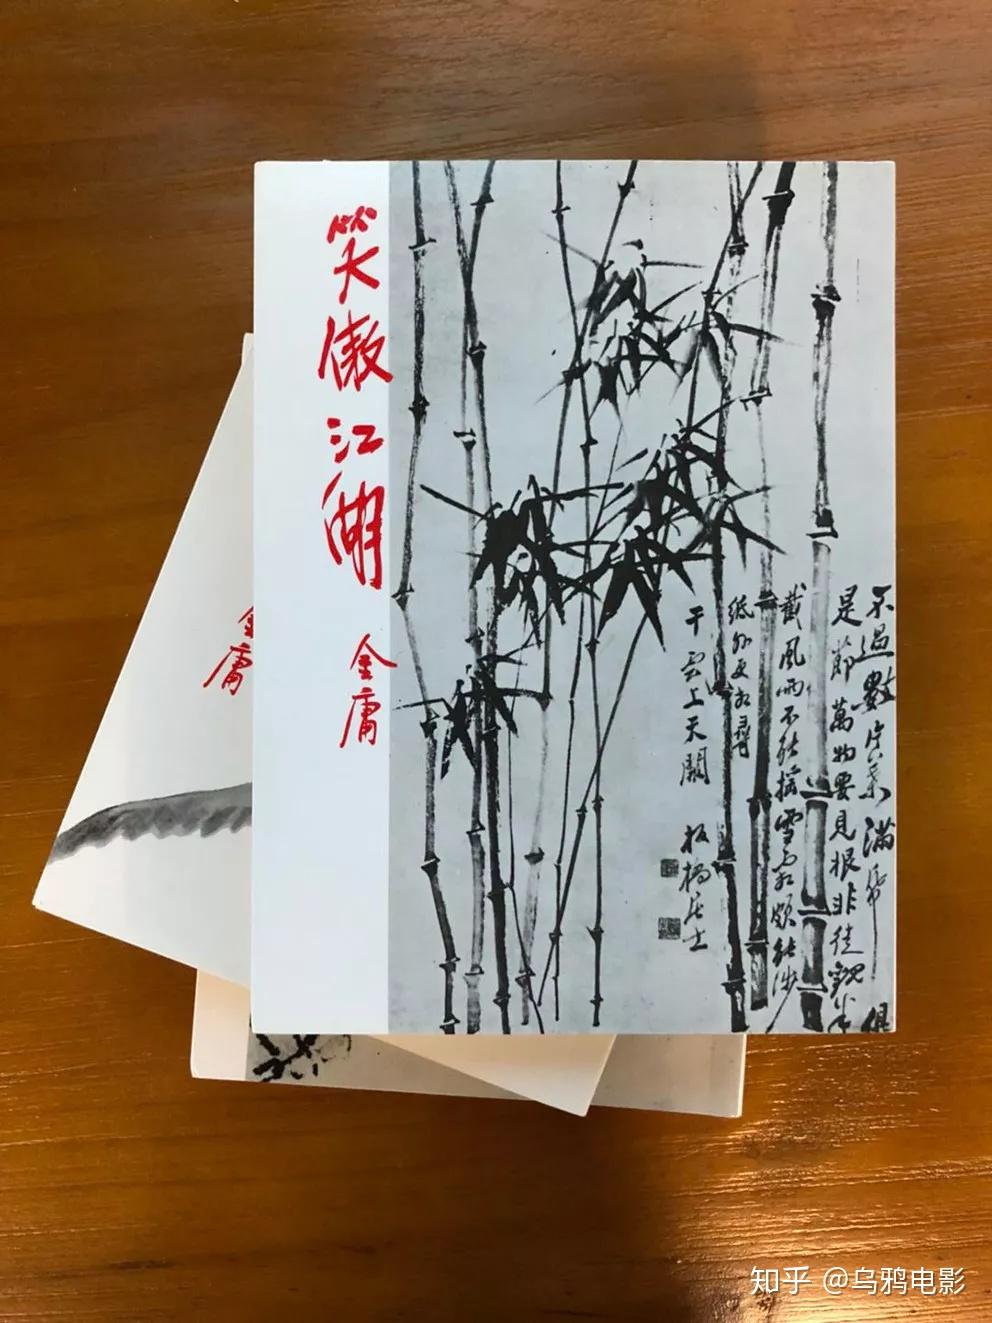 笑傲江湖
金庸
不過數片葉滿紙俱
是節萬物要見根非徒觀半
截風雨不能搖雪霜頗能涉
紙外更相尋
干雲上天闕
板橋居士
金庸
知乎 @乌鸦电影